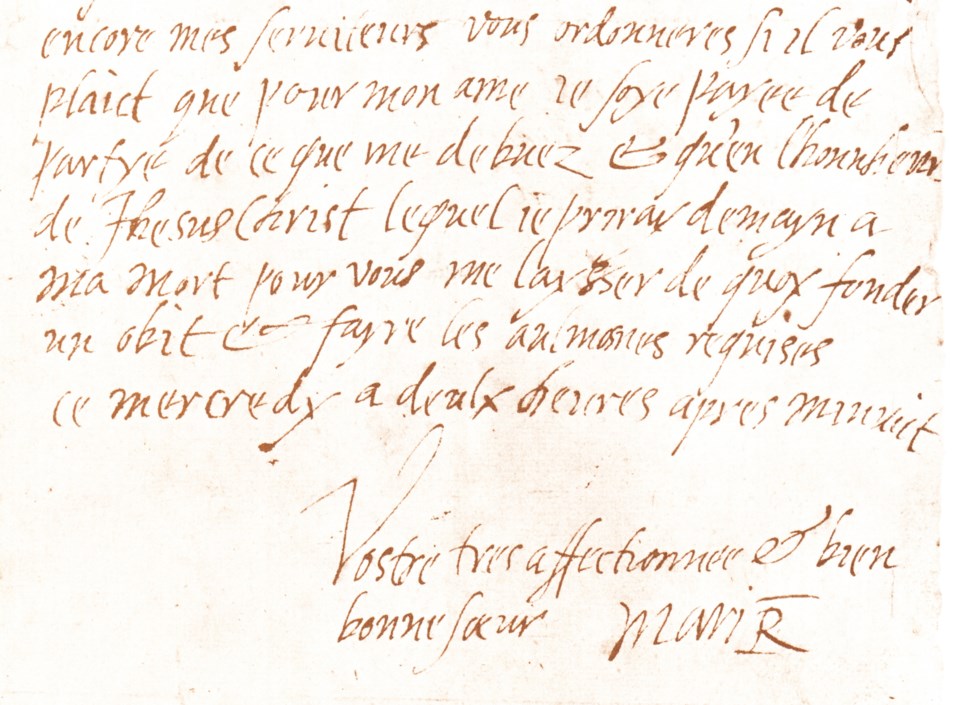 encore mes seruiteurs vous ordonneres si il vous
plaict que pour mon ame ie soye payee de
partye de ce que me debuez & qu'en l'honnheur
de Jhesus Christ lequel ie priray demayn a
ma mort pour vous me laysser de quoy fonder
un obit & fayre les aulmones requises
ce mercredy a deulx heures apres minuict
Vostre tres affectionnee & bien
bonne sœur Mari R